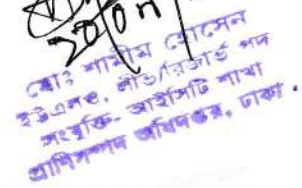 মো: শামীম হোসেন
ইউএলও, লীভ/রিজার্ভ পদ
সংযুক্তি- আইসিটি শাখা
প্রাণিসম্পদ অধিদপ্তর, ঢাকা।